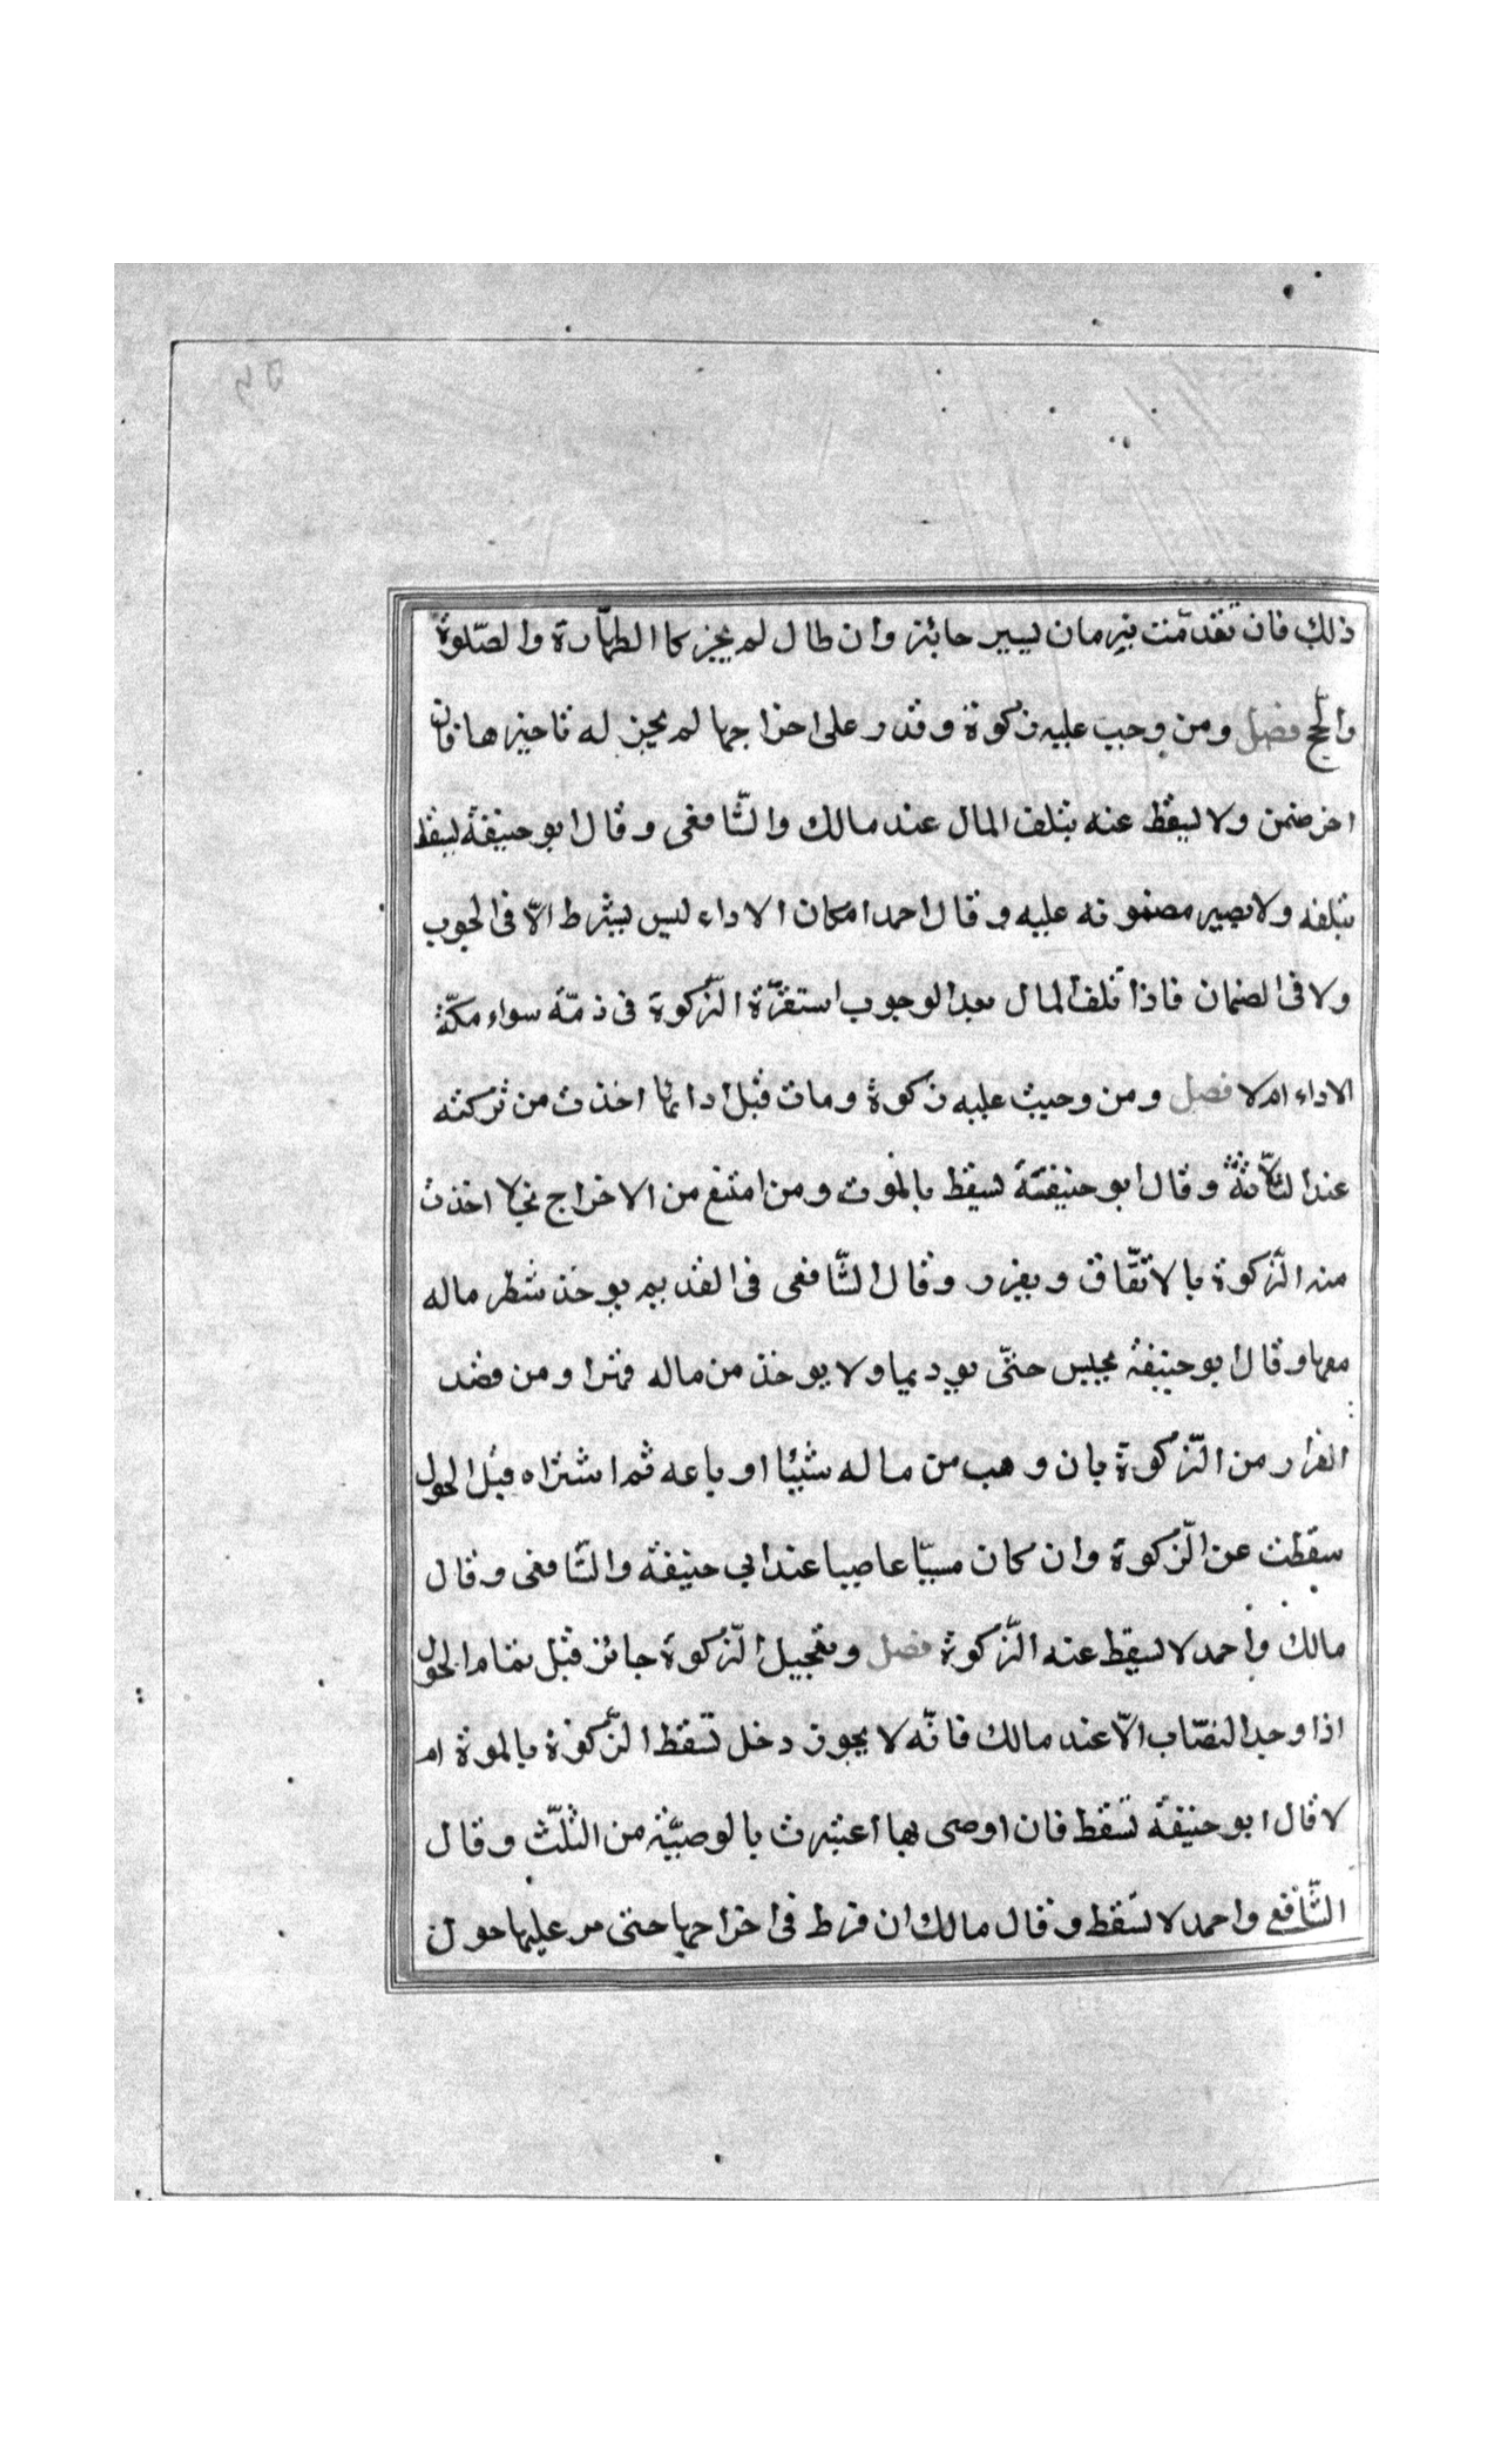 ذلك فان تقدمّت بزمان يسير جائز وان طال لم يجز كا الطهاّرة والصّلوة
والحّج فصل ومن وجبت عليه زكوة وقدر على اخراجها لم يجز له تاخيرها فان
اخر ضمن ولا ليقط عنه بتلف المال عند مالك والشّافعى وقال ابو حنيفة ليقط
بتلفه ولا يصير مضمونه عليه وقال احمد امكان الاداء ليس بشرط الّا فى الجوب
ولا فى الضمان فاذا تلف المال بعد الوجوب استقرّة الزّكوة فى ذمّة سواء مكنّة
الاداء ام لا فصل ومن وجبت عليه زكوة ومات قبل ادائها اخذت من تركته
عند الثلّاثة وقال ابو حنيفة تسقط بالموت ومن امتنع من الاخراج بخلا اخذت
منه الزّكوة بالاتفّاق ويعزر وقال الشّافعى فى القديم يوخذ شطر ماله
معها وقال ابو حنيفة يحبس حتّى يوديها ولا يوخذ من ماله قهرا ومن قصد
الفرار من الزّكوة بان وهب من ماله شيئا او باعه ثم اشتراه قبل الحول
سقطت عن الزّكوة وان كان مسيّا عاصيا عند ابي حنيفة والشّافعى وقال
مالك واحمد لا تسقط عنه الزّكوة فصل وتعجيل الزّكوة جائز قبل تمام الحول
اذا وجد النصّاب الّا عند مالك فانّه لا يجوز دخل تسقط الزّكوة بالموة ام
لا قال ابو حنيفة تسقط فان اوصى بها اعتبرت بالوصيّة من الثلّث وقال
الشّافعى واحمد لا تسقط وقال مالك ان فرط فى اخراجها حتى مر عليها حولن